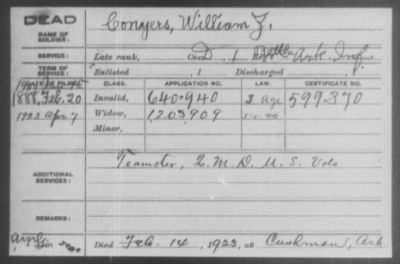 DEAD
NAME OF SOLDIER: Conyers, William J.
SERVICE: Late rank, Co. D, 1 Ark. Inf.
TERM OF SERVICE: Enlisted , 1 Discharged
CLASS. APPLICATION NO. LAW. CERTIFICATE NO.
1888, Feb. 20 Invalid, 640.940 599.370
1923 Apr 7 Widow, 1203909
Minor,
ADDITIONAL SERVICES: Teamster, Q. M. D. U. S. Vols
REMARKS:
Died Feb. 14, 1923, at Cushman, Ark.